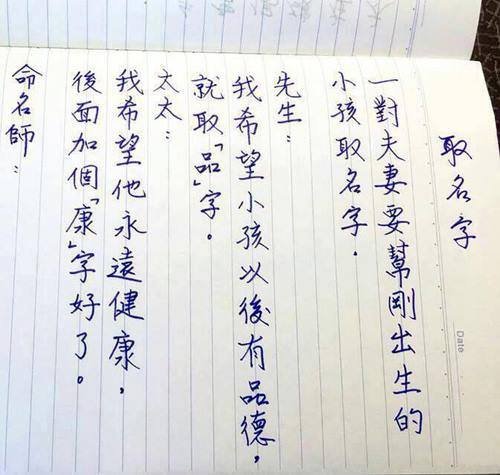 取名字
一對夫妻要幫剛出生的
小孩取名字.
先生:
我希望小孩以後有品德,
就取「品」字。
太太:
我希望他永遠健康,
後面加個「康」字好了。
命名師:
Date